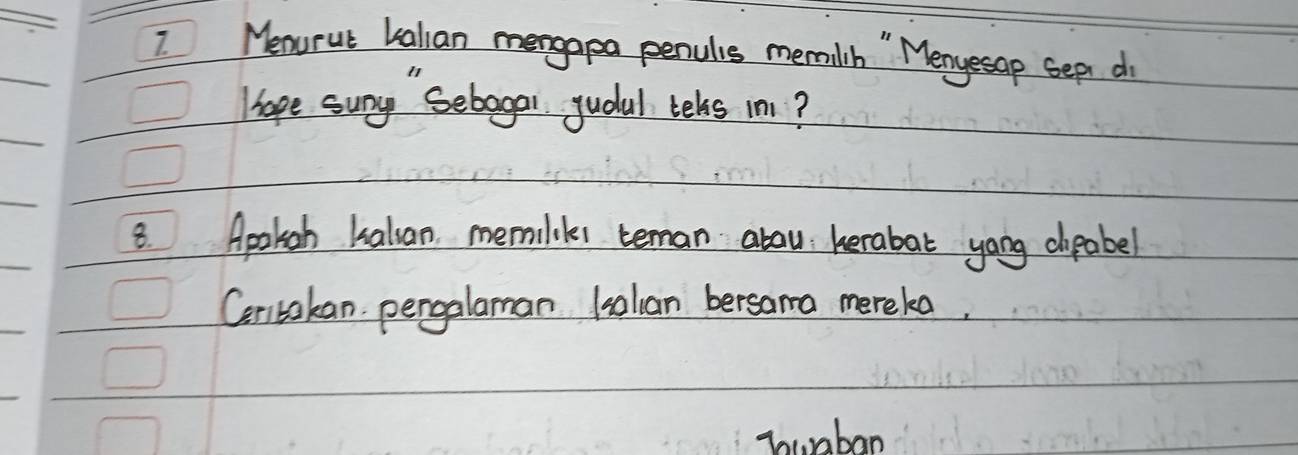 7. Menurut kalian mengapa penulis memilih "Menyesap Sepi di
Kope suny" Sebagai judul teks ini?
8. Apakah kalian memiliki teman atau kerabat yang difabel
Ceritakan pengalaman kalian bersama mereka.
Jawaban